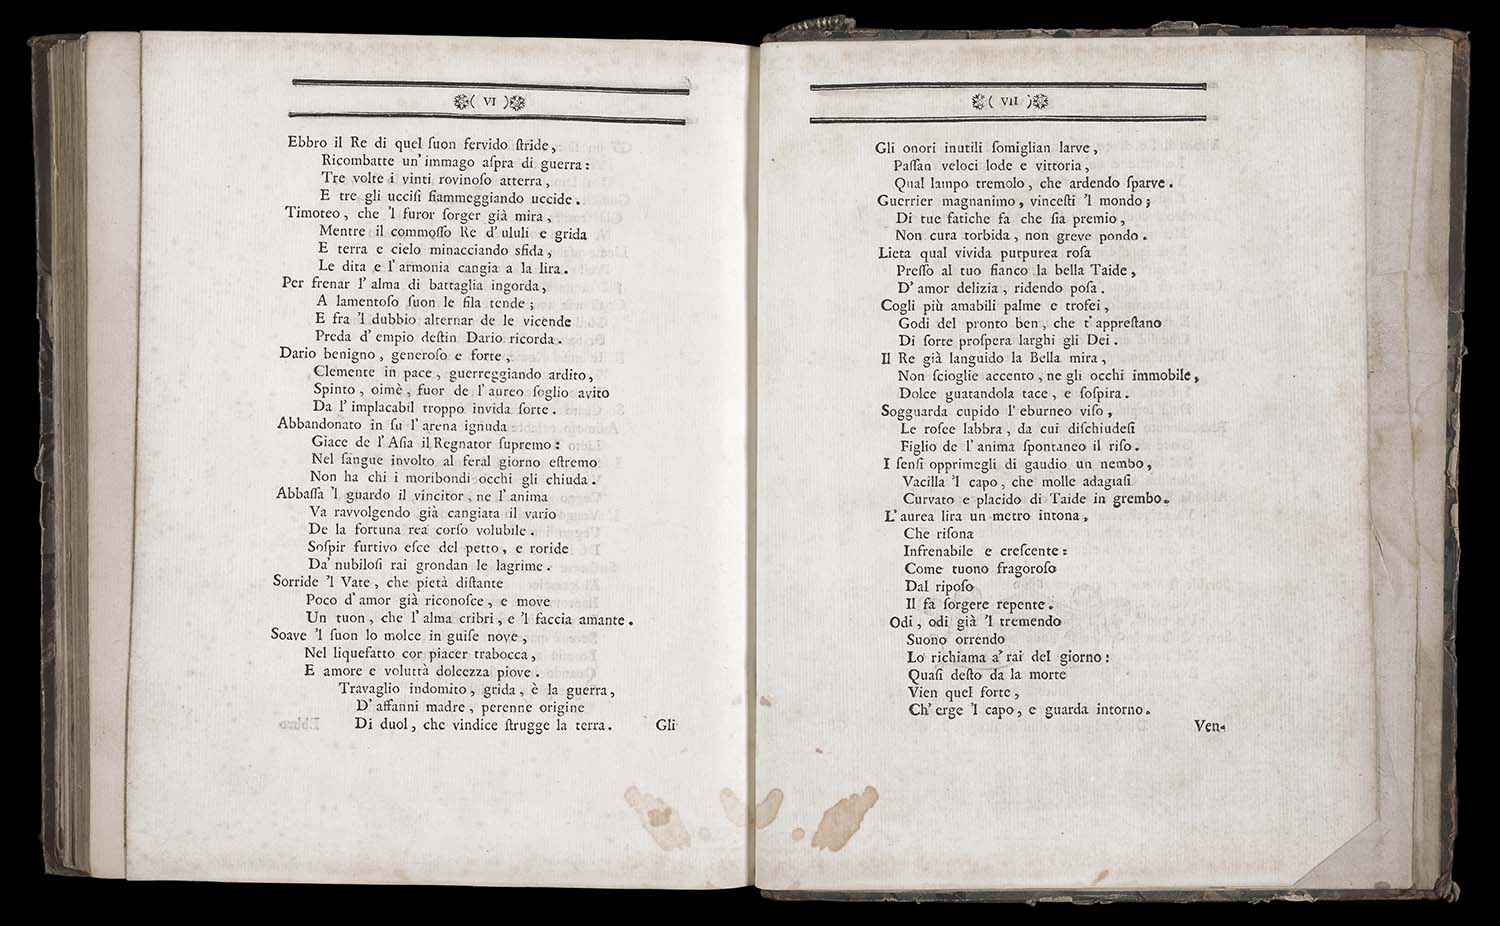 ( VI )
Ebbro il Re di quel ſuon fervido ſtride,
Ricombatte un' immago aſpra di guerra:
Tre volte i vinti rovinoſo atterra,
E tre gli ucciſi fiammeggiando uccide.
Timoteo, che 'l furor ſorger già mira,
Mentre il commoſſo Re d' ululi e grida
E terra e cielo minacciando sfida,
Le dita e l' armonia cangia a la lira.
Per frenar l' alma di battaglia ingorda,
A lamentoſo ſuon le fila tende;
E fra 'l dubbio alternar de le vicende
Preda d' empio deſtin Dario ricorda.
Dario benigno, generoſo e forte,
Clemente in pace, guerreggiando ardito,
Spinto, oimè, fuor de l' aureo ſoglio avito
Da l' implacabil troppo invida ſorte.
Abbandonato in ſu l' arena ignuda
Giace de l' Aſia il Regnator ſupremo:
Nel ſangue involto al feral giorno eſtremo
Non ha chi i moribondi occhi gli chiuda.
Abbaſſa 'l guardo il vincitor, ne l' anima
Va ravvolgendo già cangiata il vario
De la fortuna rea corſo volubile.
Soſpir furtivo eſce del petto, e roride
Da' nubiloſi rai grondan le lagrime.
Sorride 'l Vate, che pietà diſtante
Poco d' amor già riconoſce, e move
Un tuon, che l' alma cribri, e 'l faccia amante.
Soave 'l ſuon lo molce in guiſe nove,
Nel liquefatto cor piacer trabocca,
E amore e voluttà dolcezza piove.
Travaglio indomito, grida, è la guerra,
D' affanni madre, perenne origine
Di duol, che vindice ſtrugge la terra.
Gli
( VII )
Gli onori inutili ſomiglian larve,
Paſſan veloci lode e vittoria,
Qual lampo tremolo, che ardendo ſparve.
Guerrier magnanimo, vinceſti 'l mondo;
Di tue fatiche fa che ſia premio,
Non cura torbida, non greve pondo.
Lieta qual vivida purpurea roſa
Preſſo al tuo fianco la bella Taide,
D' amor delizia, ridendo poſa.
Cogli più amabili palme e trofei,
Godi del pronto ben, che t' appreſtano
Di ſorte proſpera larghi gli Dei.
Il Re già languido la Bella mira,
Non ſcioglie accento, ne gli occhi immobile,
Dolce guatandola tace, e ſoſpira.
Sogguarda cupido l' eburneo viſo,
Le roſee labbra, da cui diſchiudeſi
Figlio de l' anima ſpontaneo il riſo.
I ſenſi opprimegli di gaudio un nembo,
Vacilla 'l capo, che molle adagiaſi
Curvato e placido di Taide in grembo.
L' aurea lira un metro intona,
Che riſona
Infrenabile e creſcente:
Come tuono fragoroſo
Dal ripoſo
Il fa ſorgere repente.
Odi, odi già 'l tremendo
Suono orrendo
Lo richiama a' rai del giorno:
Quaſi deſto da la morte
Vien quel forte,
Ch' erge 'l capo, e guarda intorno.
Ven-